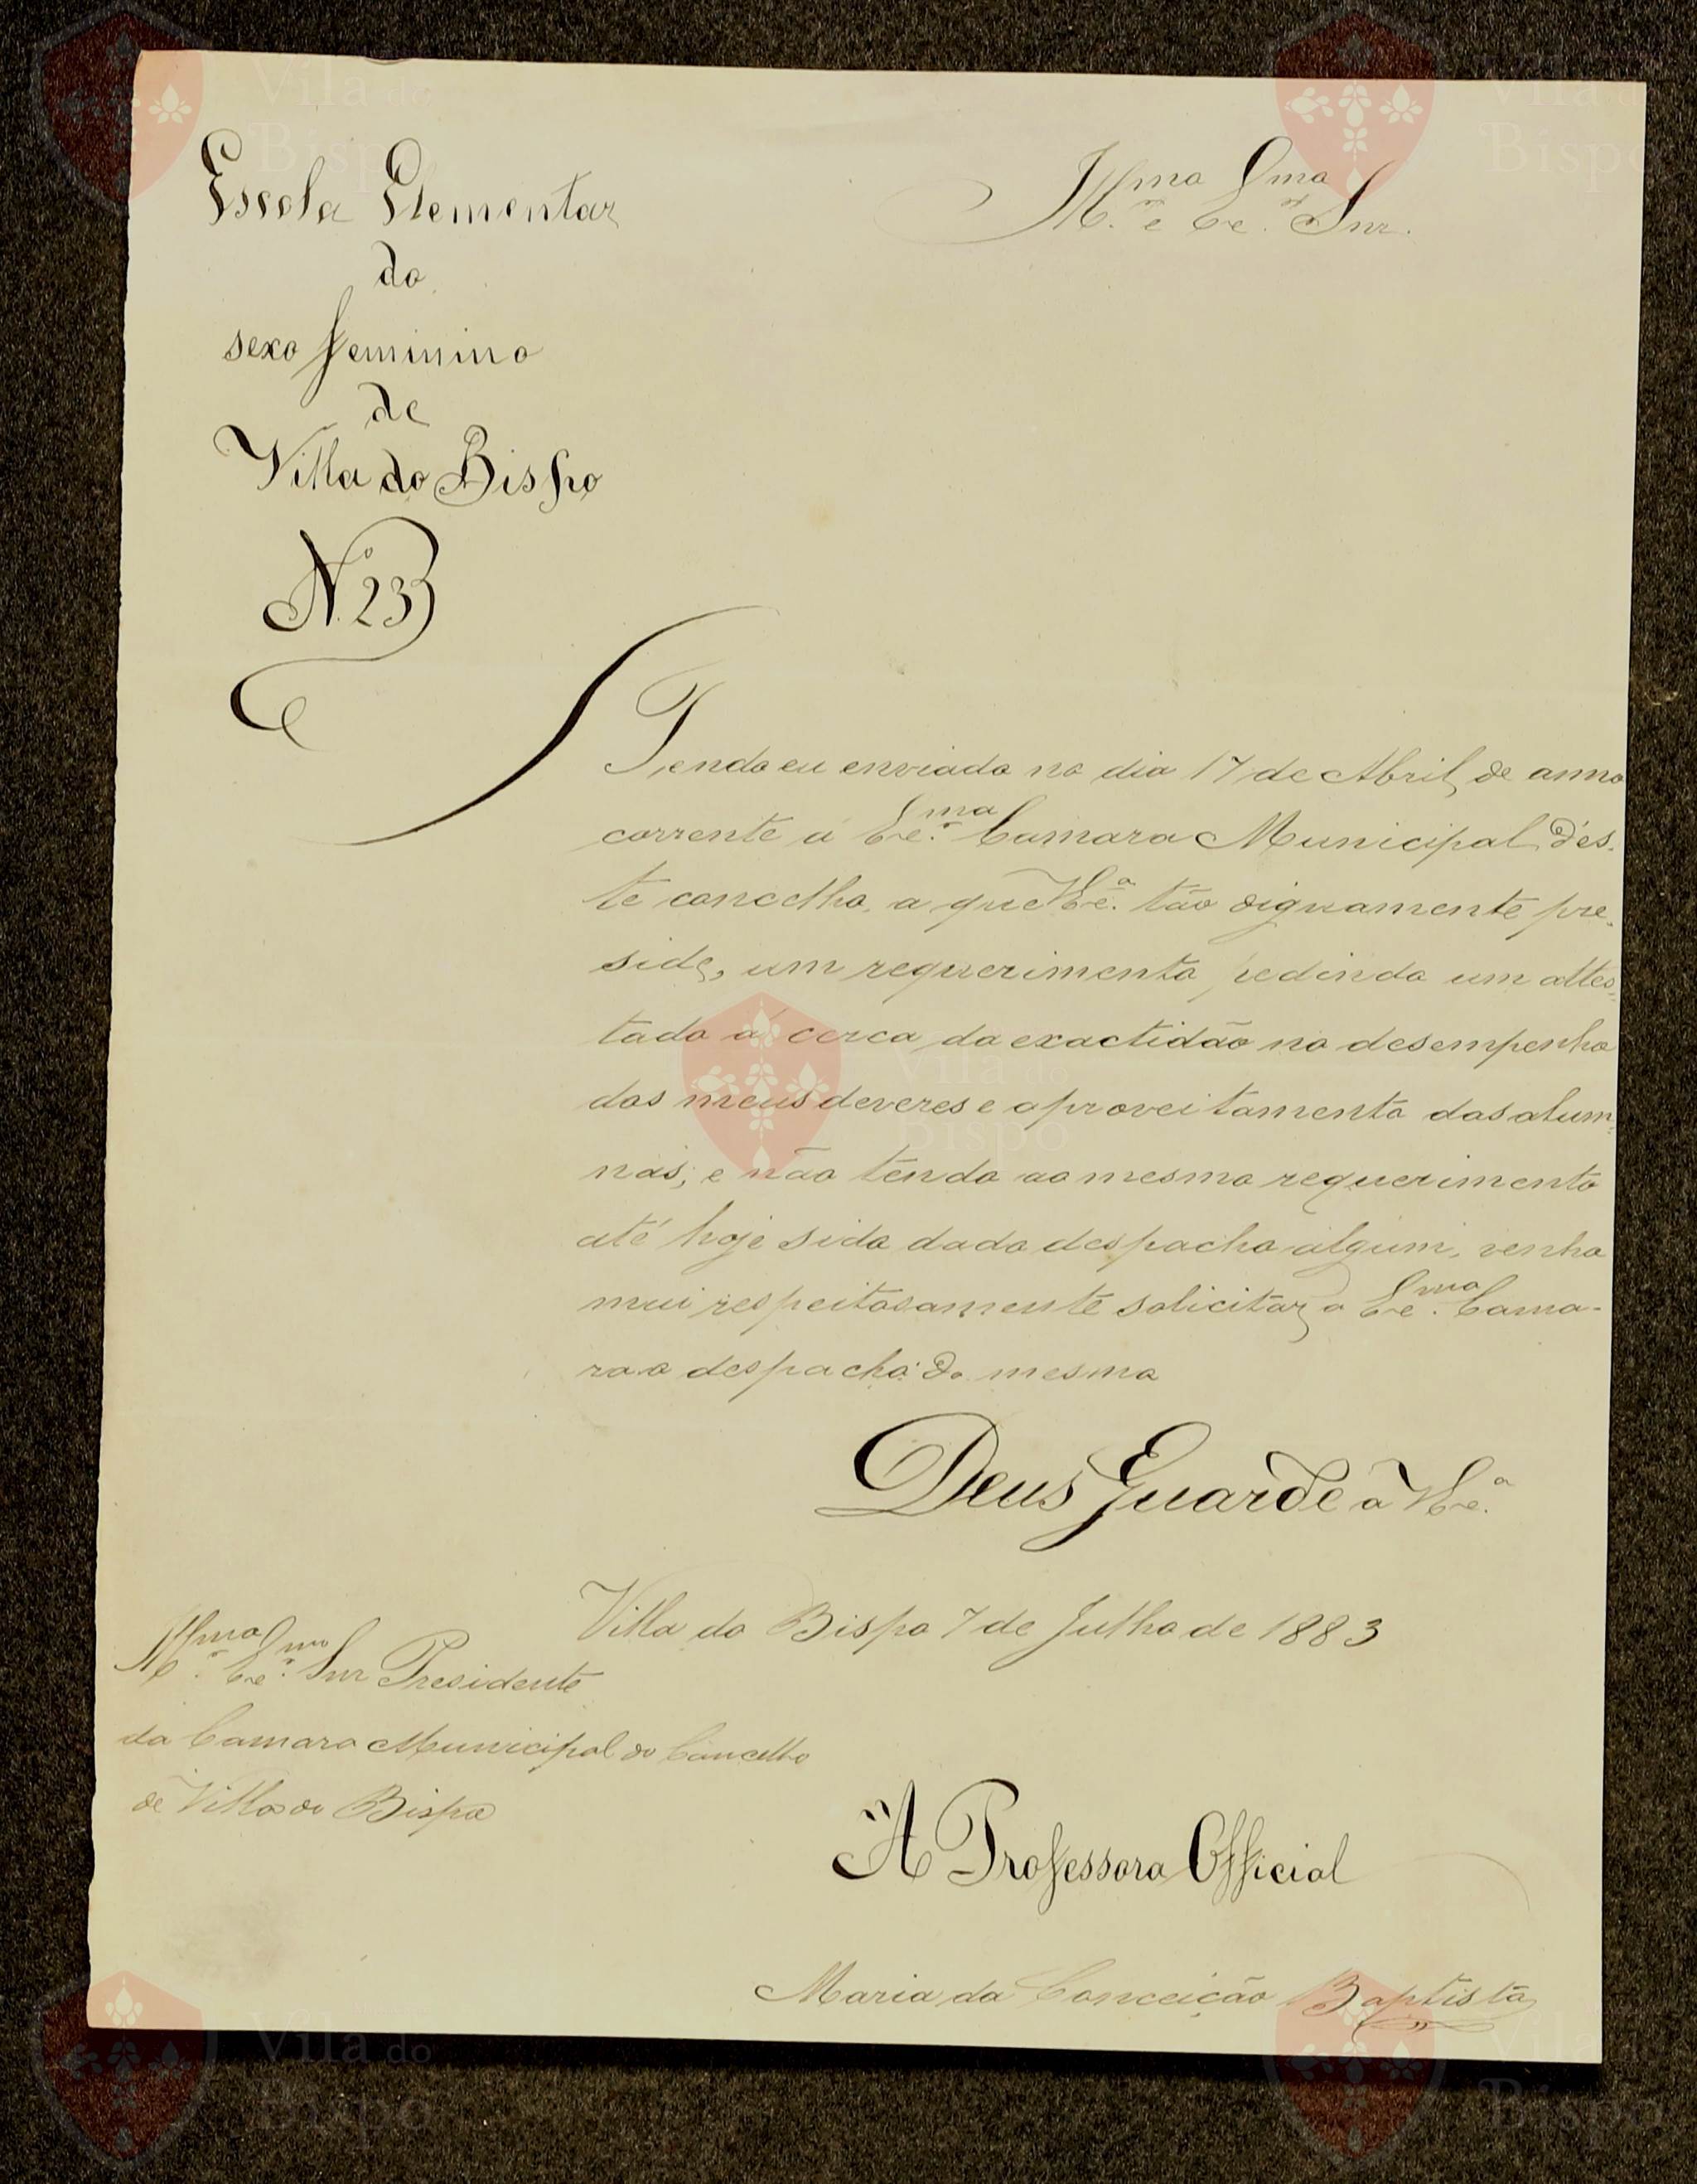 Escola Elementar
do
sexo feminino
de
Villa do Bispo
N.º 23
Ill.mo e Ex.mo Snr.
Tendo eu enviado no dia 17 de Abril de anno
corrente á Ex.ma Camara Municipal d'es-
te concelho, a que V. Ex.ª tão dignamente pre-
side, um requerimento, pedindo um attes-
tado á cerca da exactidão no desempenho
dos meus deveres e aproveitamento das alum-
nas; e não tendo ao mesmo requerimento
até hoje sido dado despacho algum, venho
mui respeitosamente solicitar a Ex.ma Cama-
ra o despacho do mesmo
Deus Guarde a V. Ex.ª
Villa do Bispo 7 de Julho de 1883
Ill.mo Ex.mo Snr Presidente
da Camara Municipal do Concelho
de Villa do Bispo
A Professora Official
Maria da Conceição Baptista
Vila do
Bispo
Vila do
Bispo
Vila do
Bispo
Vila do
Bispo
Vila do
Bispo